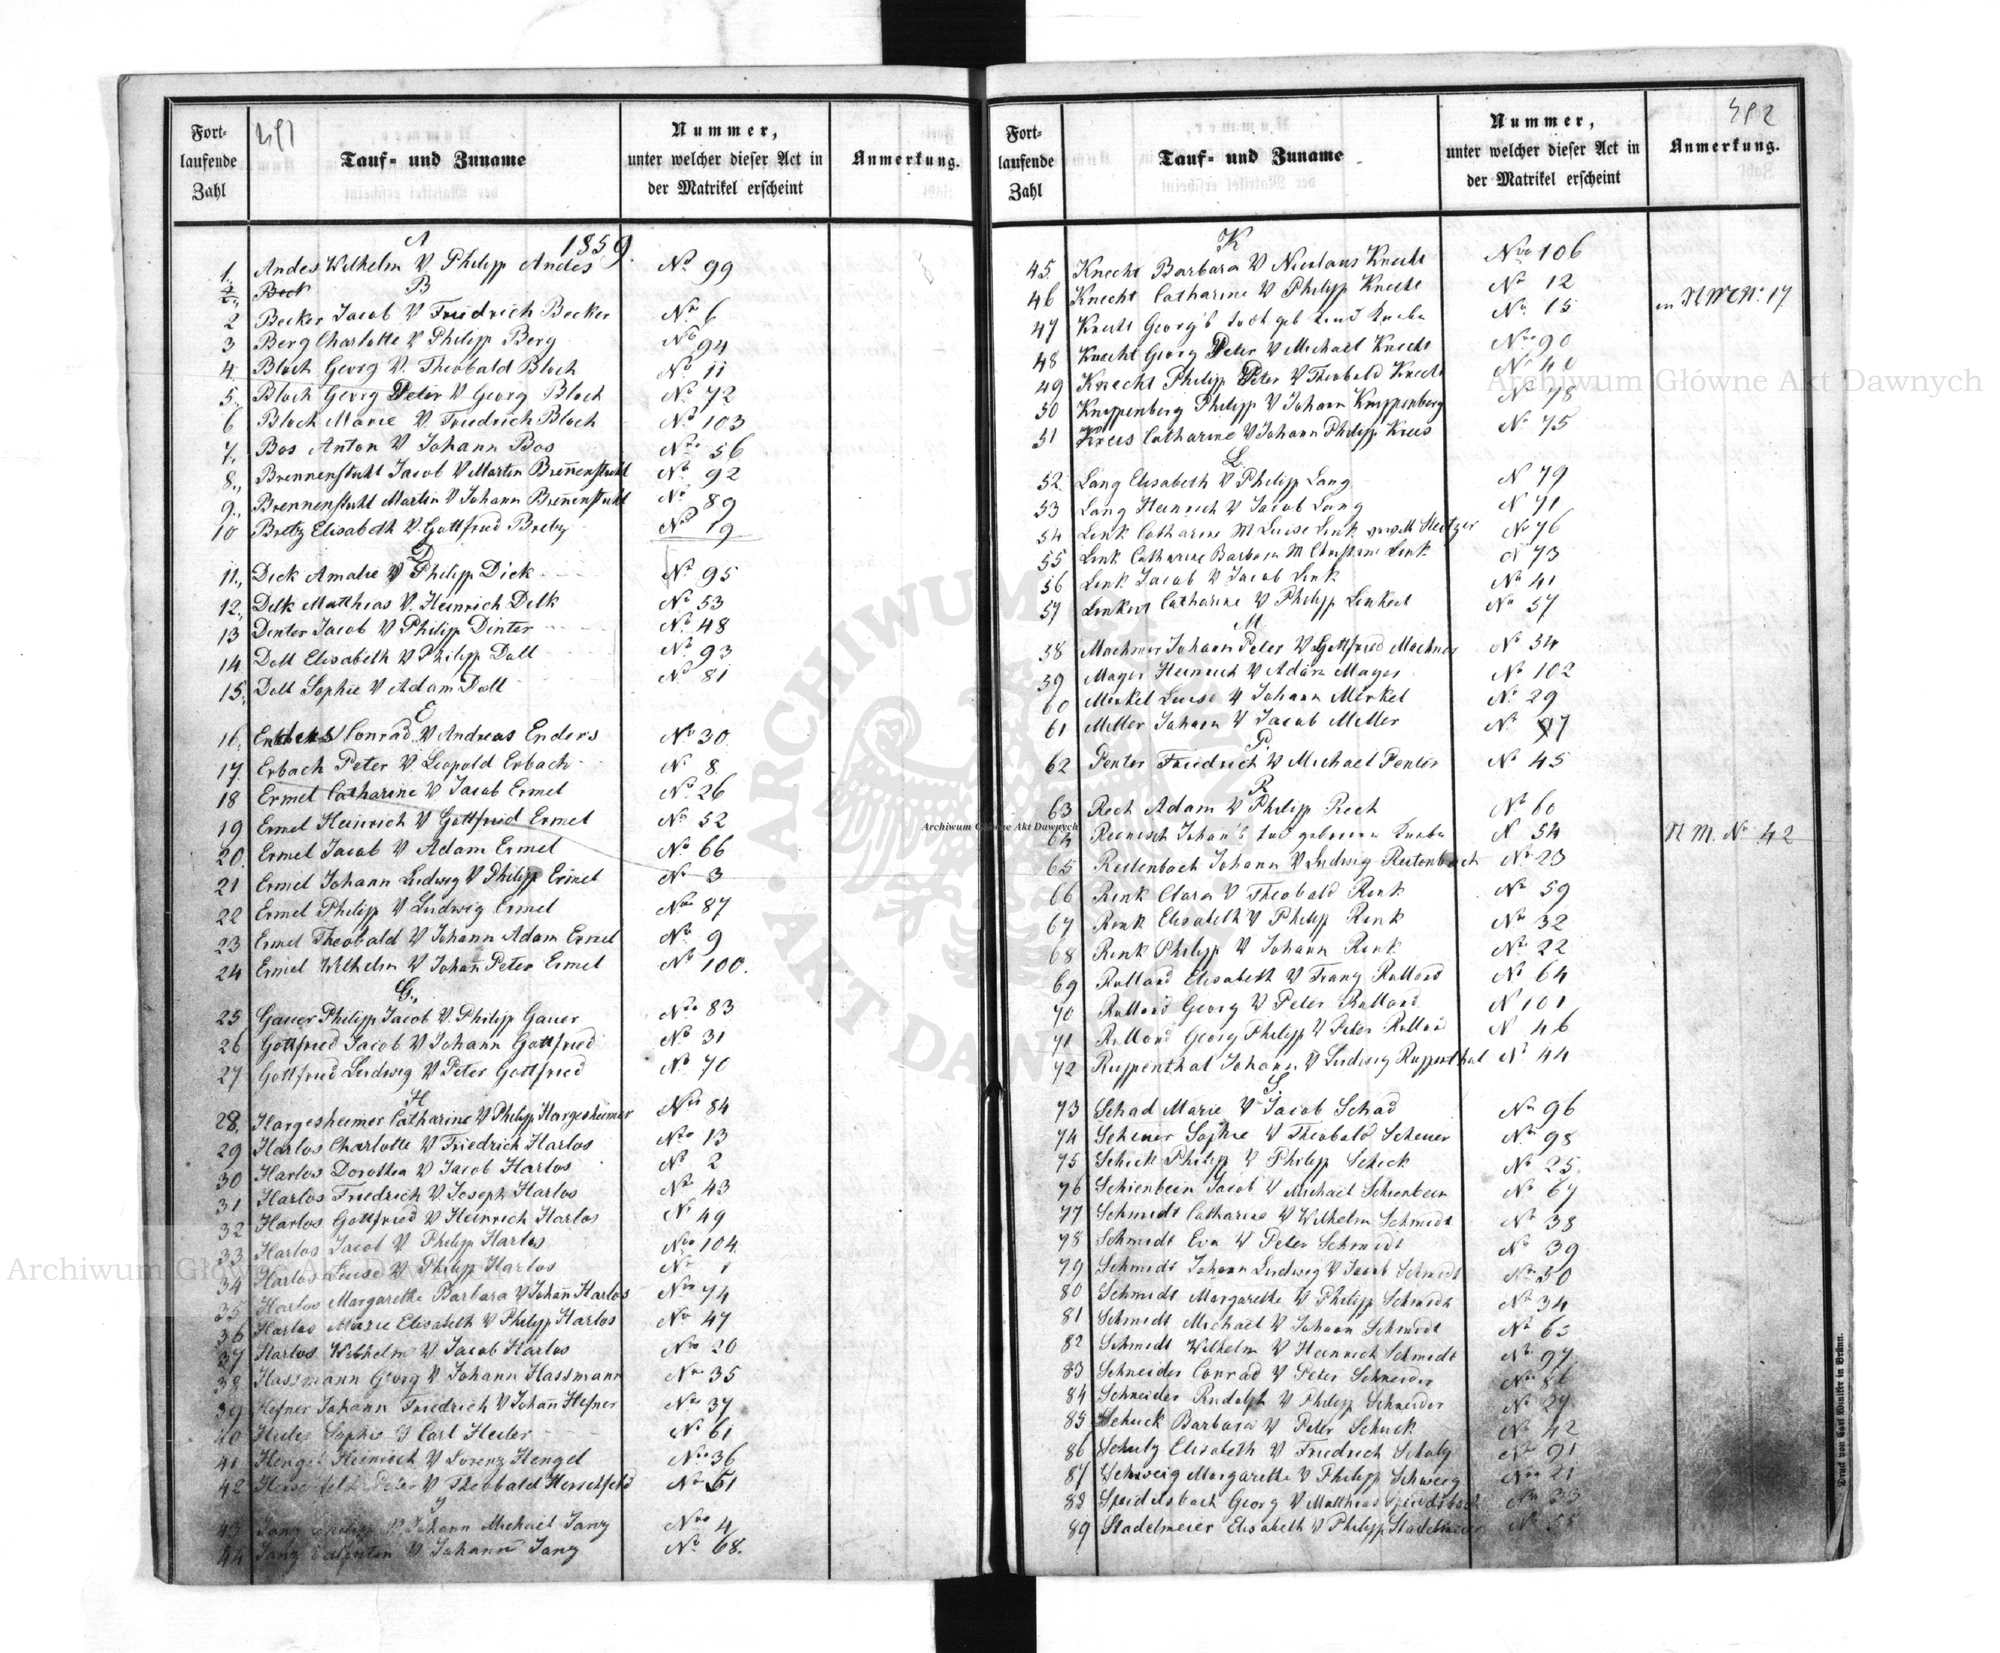 Fort-
laufende
Zahl
Tauf- und Zuname
Nummer,
unter welcher dieser Act in
der Matrikel erscheint
Anmerkung.
A 1859.
1. Andes Wilhelm V Philipp Andes No 99
Beck B
2 Becker Jacob V Friedrich Becker No 6
3 Berg Charlotte V Philipp Berg No 94
4. Bloch Georg V. Theobald Bloch No 11
5. Bloch Georg Peter V Georg Bloch No 72
6 Bloch Marie V. Friedrich Bloch No 103
7. Bos Anton V Johann Bos No 56
8. Brennenstuhl Jacob V Martin Breñenstuhl No 92
9. Brennenstuhl Martin V Johann Breñenstuhl No 89
10 Bretz Elisabeth V. Gottfried Bretz No 19
D
11. Dick Amalie V Philipp Dick No 95
12. Dilk Matthias V. Heinrich Dilk No 53
13 Dinter Jacob V Philipp Dinter No 48
14. Doll Elisabeth V Philipp Doll No 93
15. Doll Sophie V Adam Doll No 81
E
16. Enders Conrad V Andreas Enders No 30
17. Erbach Peter V. Leopold Erbach No 8
18 Ermel Catharine V Jacob Ermel No 26
19 Ermel Heinrich V Gottfried Ermel No 52
20. Ermel Jacob V Adam Ermel No 66
21 Ermel Johann Ludwig V Philipp Ermel No 3
22 Ermel Philipp V Ludwig Ermel No 87
23 Ermel Theobald V Johann Adam Ermel No 9
24 Ermel Wilhelm V Johañ Peter Ermel No 100.
G.
25 Gauer Philipp Jacob V. Philipp Gauer No 83
26 Gottfried Jacob V Johann Gottfried No 31
27 Gottfried Ludwig V Peter Gottfried No 70
H
28. Hargesheimer Catharine V Philipp Hargesheimer No 84
29 Harlos Charlotte V Friedrich Harlos No 13
30 Harlos Dorothea V Jacob Harlos No 2
31 Harlos Friedrich V. Joseph Harlos No 43
32 Harlos Gottfried V Heinrich Harlos No 49
33 Harlos Jacob V Philipp Harlos No 104.
34 Harlos Luise V Philipp Harlos No 1
35 Harlos Margarethe Barbara V Johañ Harlos No 74
36 Harlos Marie Elisabeth V Philipp Harlos No 47
37 Harlos Wilhelm V Jacob Harlos No 20
38 Hassmann Georg V Johann Hassmann No 35
39 Hefner Johann Friedrich V Johañ Hefner No 37
40 Sophie V Carl Heiler No 61
41 Hengel Heinrich V Lorenz Hengel No 36
42 Peter V Theobald Herschfeld No 51
J
43 Janz Philipp V Johann Michael Janz No 4
44 Janz Valentin V Johann Janz No 68.
Fort-
laufende
Zahl
Tauf- und Zuname
Nummer,
unter welcher dieser Act in
der Matrikel erscheint
Anmerkung.
K
45. Knecht Barbara V Nicolaus Knecht No 106
46 Knecht Catharine V Philipp Knecht No 12
47 Knecht Georg's todt geb No 15 No. 17
48 Knecht Georg Peter V Michael Knecht No 90
49 Knecht Philipp Peter V Theobald Knecht No 40
50 Knippenberg Philipp V Johann Knippenberg No 78
51 Kreis Catharine V Johann Philipp Kreis No 75
L
52 Lang Elisabeth V Philipp Lang N 79
53 Lang Heinrich V Jacob Lang N 71
54 Link Catharine M Luise Link No 76
55 Link Catharine Barbara M Christine Link N 73
56 Link Jacob V Jacob Link No 41
57 Linkert Catharine V Philipp Linkert No 57
M
58 Machmer Johann Peter V Gottfried Machmer No 54
59 Mayer Heinrich V Adam Mayer No 102
60 Merkel Luise V Johann Merkel No 29
61 Miller Johann V Jacob Miller No 77
P.
62 Penter Friedrich V Michael Penter No 45
R
63 Rech Adam V Philipp Rech No 60
64 N M. No 42
65 Reitenbach Johann V Ludwig Reitenbach No 23
66 Renk Clara V Theobald Renk No 59
67 Renk Elisabeth V Philipp Renk No 32
68 Renk Philipp V Johann Renk No 22
69 Rolland Elisabeth V Franz Rolland No 64
70 Rolland Georg V Peter Rolland N 101
71 Rolland Georg Philipp V Peter Rolland N 46
72 Ruppenthal Johann V Ludwig Ruppenthal No 44
S.
73 Schad Marie V Jacob Schad No 96
74 Scheuer Sophie V Theobald Scheuer No 98
75 Schick Philipp V Philipp Schick No 25.
76 Schienbein Jacob V Michael Schienbein No 67
77 Schmidt Catharine V Wilhelm Schmidt No 38
78 Schmidt Eva V Peter Schmidt No 39
79 Schmidt Johann Ludwig V Jacob Schmidt No 50
80 Schmidt Margarethe V Philipp Schmidt No 34
81 Schmidt Michael V Johann Schmidt No 63
82 Schmidt Wilhelm V Heinrich Schmidt No 97
83 Schneider Conrad V Peter Schneider No 86
84 Schneider Rudolph V Philipp Schneider No 27
85 Schuck Barbara V Peter Schuck No 42
86 Schulz Elisabeth V Friedrich Schulz No 91
87 Schweig Margarethe V Philipp Schweig No 21
88 Speidelsbach Georg V Matthias Speidelsbach No 33
89 Stadelmeier Elisabeth V Philipp Stadelmeier No 58
Druck von Carl Winiker in Brünn.
Archiwum Główne Akt Dawnych
Archiwum Główne Akt Dawnych
Archiwum Główne Akt Dawnych